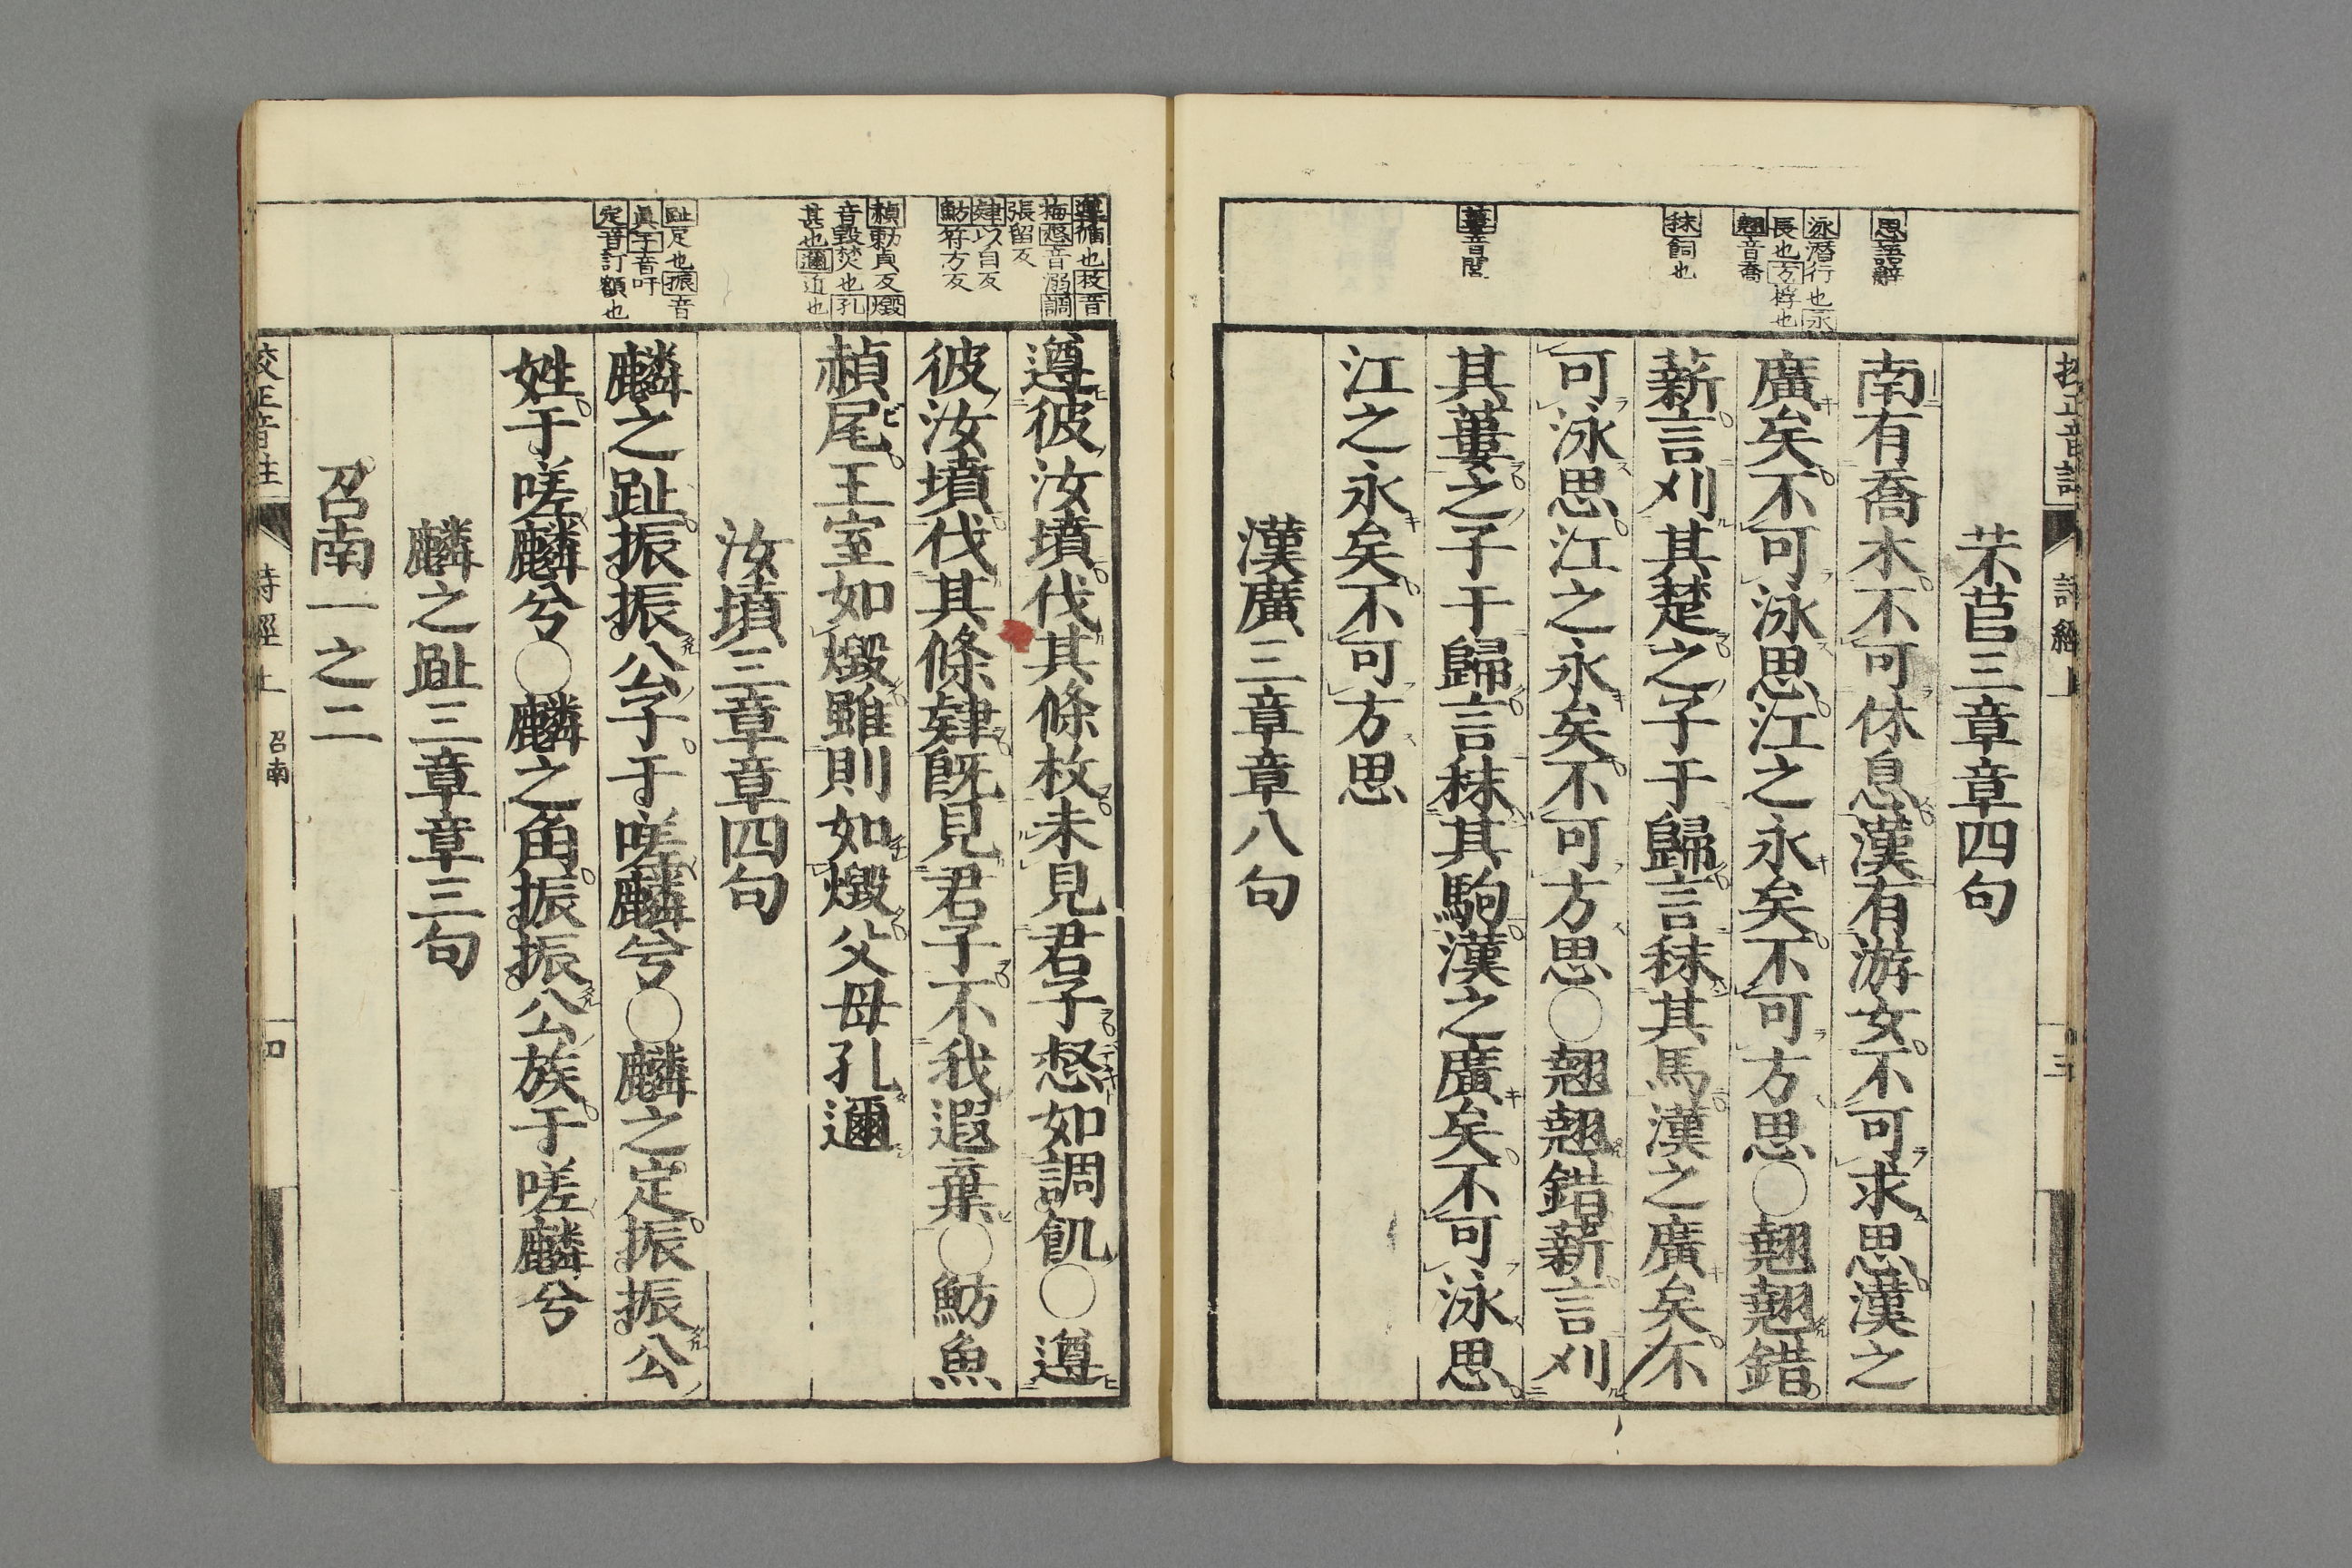 思語辭
泳潜行也永
長也方桴也
翹音喬
秣飼也
蔞音閭
芣苢三章章四句
南有喬木不可休息漢有游女不可求思漢之
廣矣不可泳思江之永矣不可方思〇翹翹錯
薪言刈其楚之子于歸言秣其馬漢之廣矣不
可泳思江之永矣不可方思〇翹翹錯薪言刈
其蔞之子于歸言秣其駒漢之廣矣不可泳思
江之永矣不可方思
漢廣三章章八句
遵循也枚音
梅惄音溺調
張留反
肄以自反
魴符方反
赬勅貞反燬
音毀焚也孔
甚也邇近也
趾足也振音
眞于音吁
定音訂額也
遵彼汝墳伐其條枚未見君子惄如調飢〇遵
彼汝墳伐其條肄既見君子不我遐棄〇魴魚
赬尾王室如燬雖則如燬父母孔邇
汝墳三章章四句
麟之趾振振公子于嗟麟兮〇麟之定振振公
姓于嗟麟兮〇麟之角振振公族于嗟麟兮
麟之趾三章章三句
召南一之二
校正音註 詩經上 召南 四